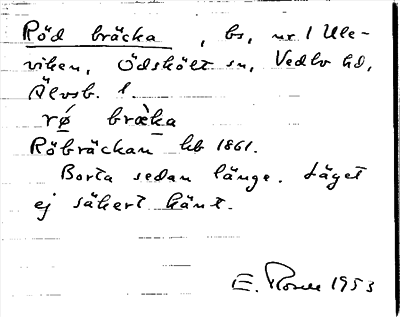 Röd bräcka, bs, nr 1 Ule-
viken, Ödskölt sn, Vedbo hd,
Älvsb. l.
rǿ bræ̀ka
Röbräckan hb 1861.
Borta sedan länge. Läget
ej säkert känt.
E. 1953